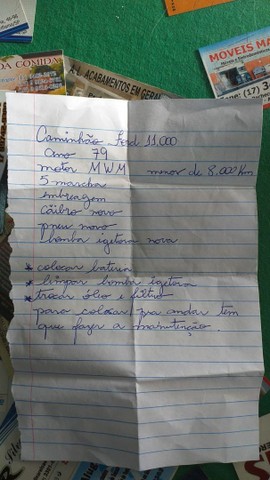 DA COMIDA
A.L. ACABAMENTOS EM GERAL
MOVEIS MA
Fone: (17) 3
Caminhão Ford 11,000
ano 79
motor MWM menor de 8,000 Km
5 marcha
embreagem
câibro novo
pneu novo
bomba igetora nova
* colocar bateria
* limpar bomba igetora
* trocar óleo e filtro
para colocar pra andar tem
que fazer a manutenção.